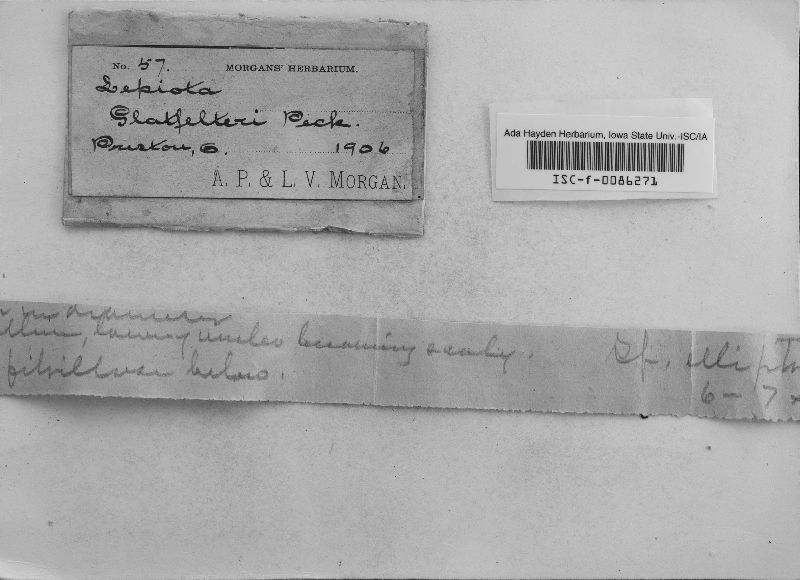 No. 57. MORGANS' HERBARIUM.
Lepiota
Glatfelteri Peck.
Preston, O. 1906
A. P. & L. V. MORGAN.
Ada Hayden Herbarium, Iowa State Univ.-ISC/IA
ISC-f-0086271
becoming scaly. Sp. ellipt
fibrillose below.
6-7